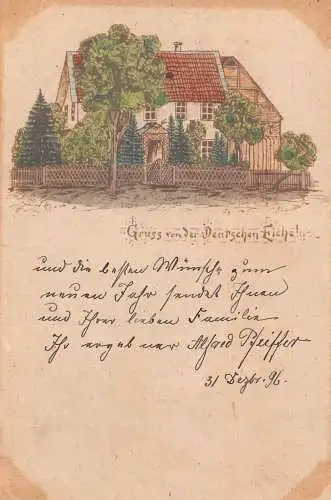 Gruss von der Deutschen Eiche!
und die besten Wünsche zum
neuen Jahr sendet Ihnen
und Ihrer lieben Familie
Ihr ergebener Alfred Pfeiffer
31 Dezbr. 96.